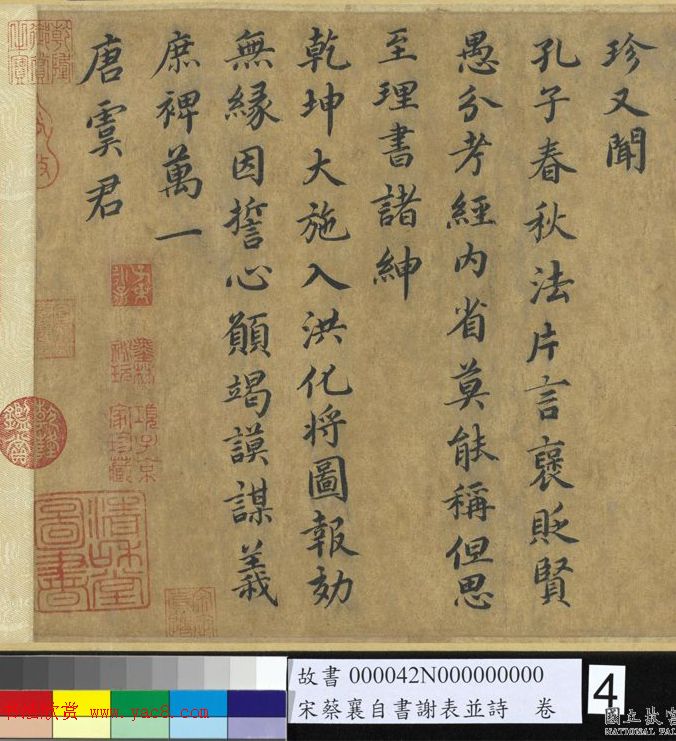 珍又聞
孔子春秋法片言襃貶賢
愚分考經內省莫能稱但思
至理書諸紳
乾坤大施入洪化將圖報効
無縁因誓心願竭謨謀義
庶裨萬一
唐虞君
項子京
家珍藏
清和堂
圖書
故書 000042N000000000
宋蔡襄自書謝表並詩 卷
4
书法欣赏 www.yac8.com
國立故宮
NATIONAL PAL